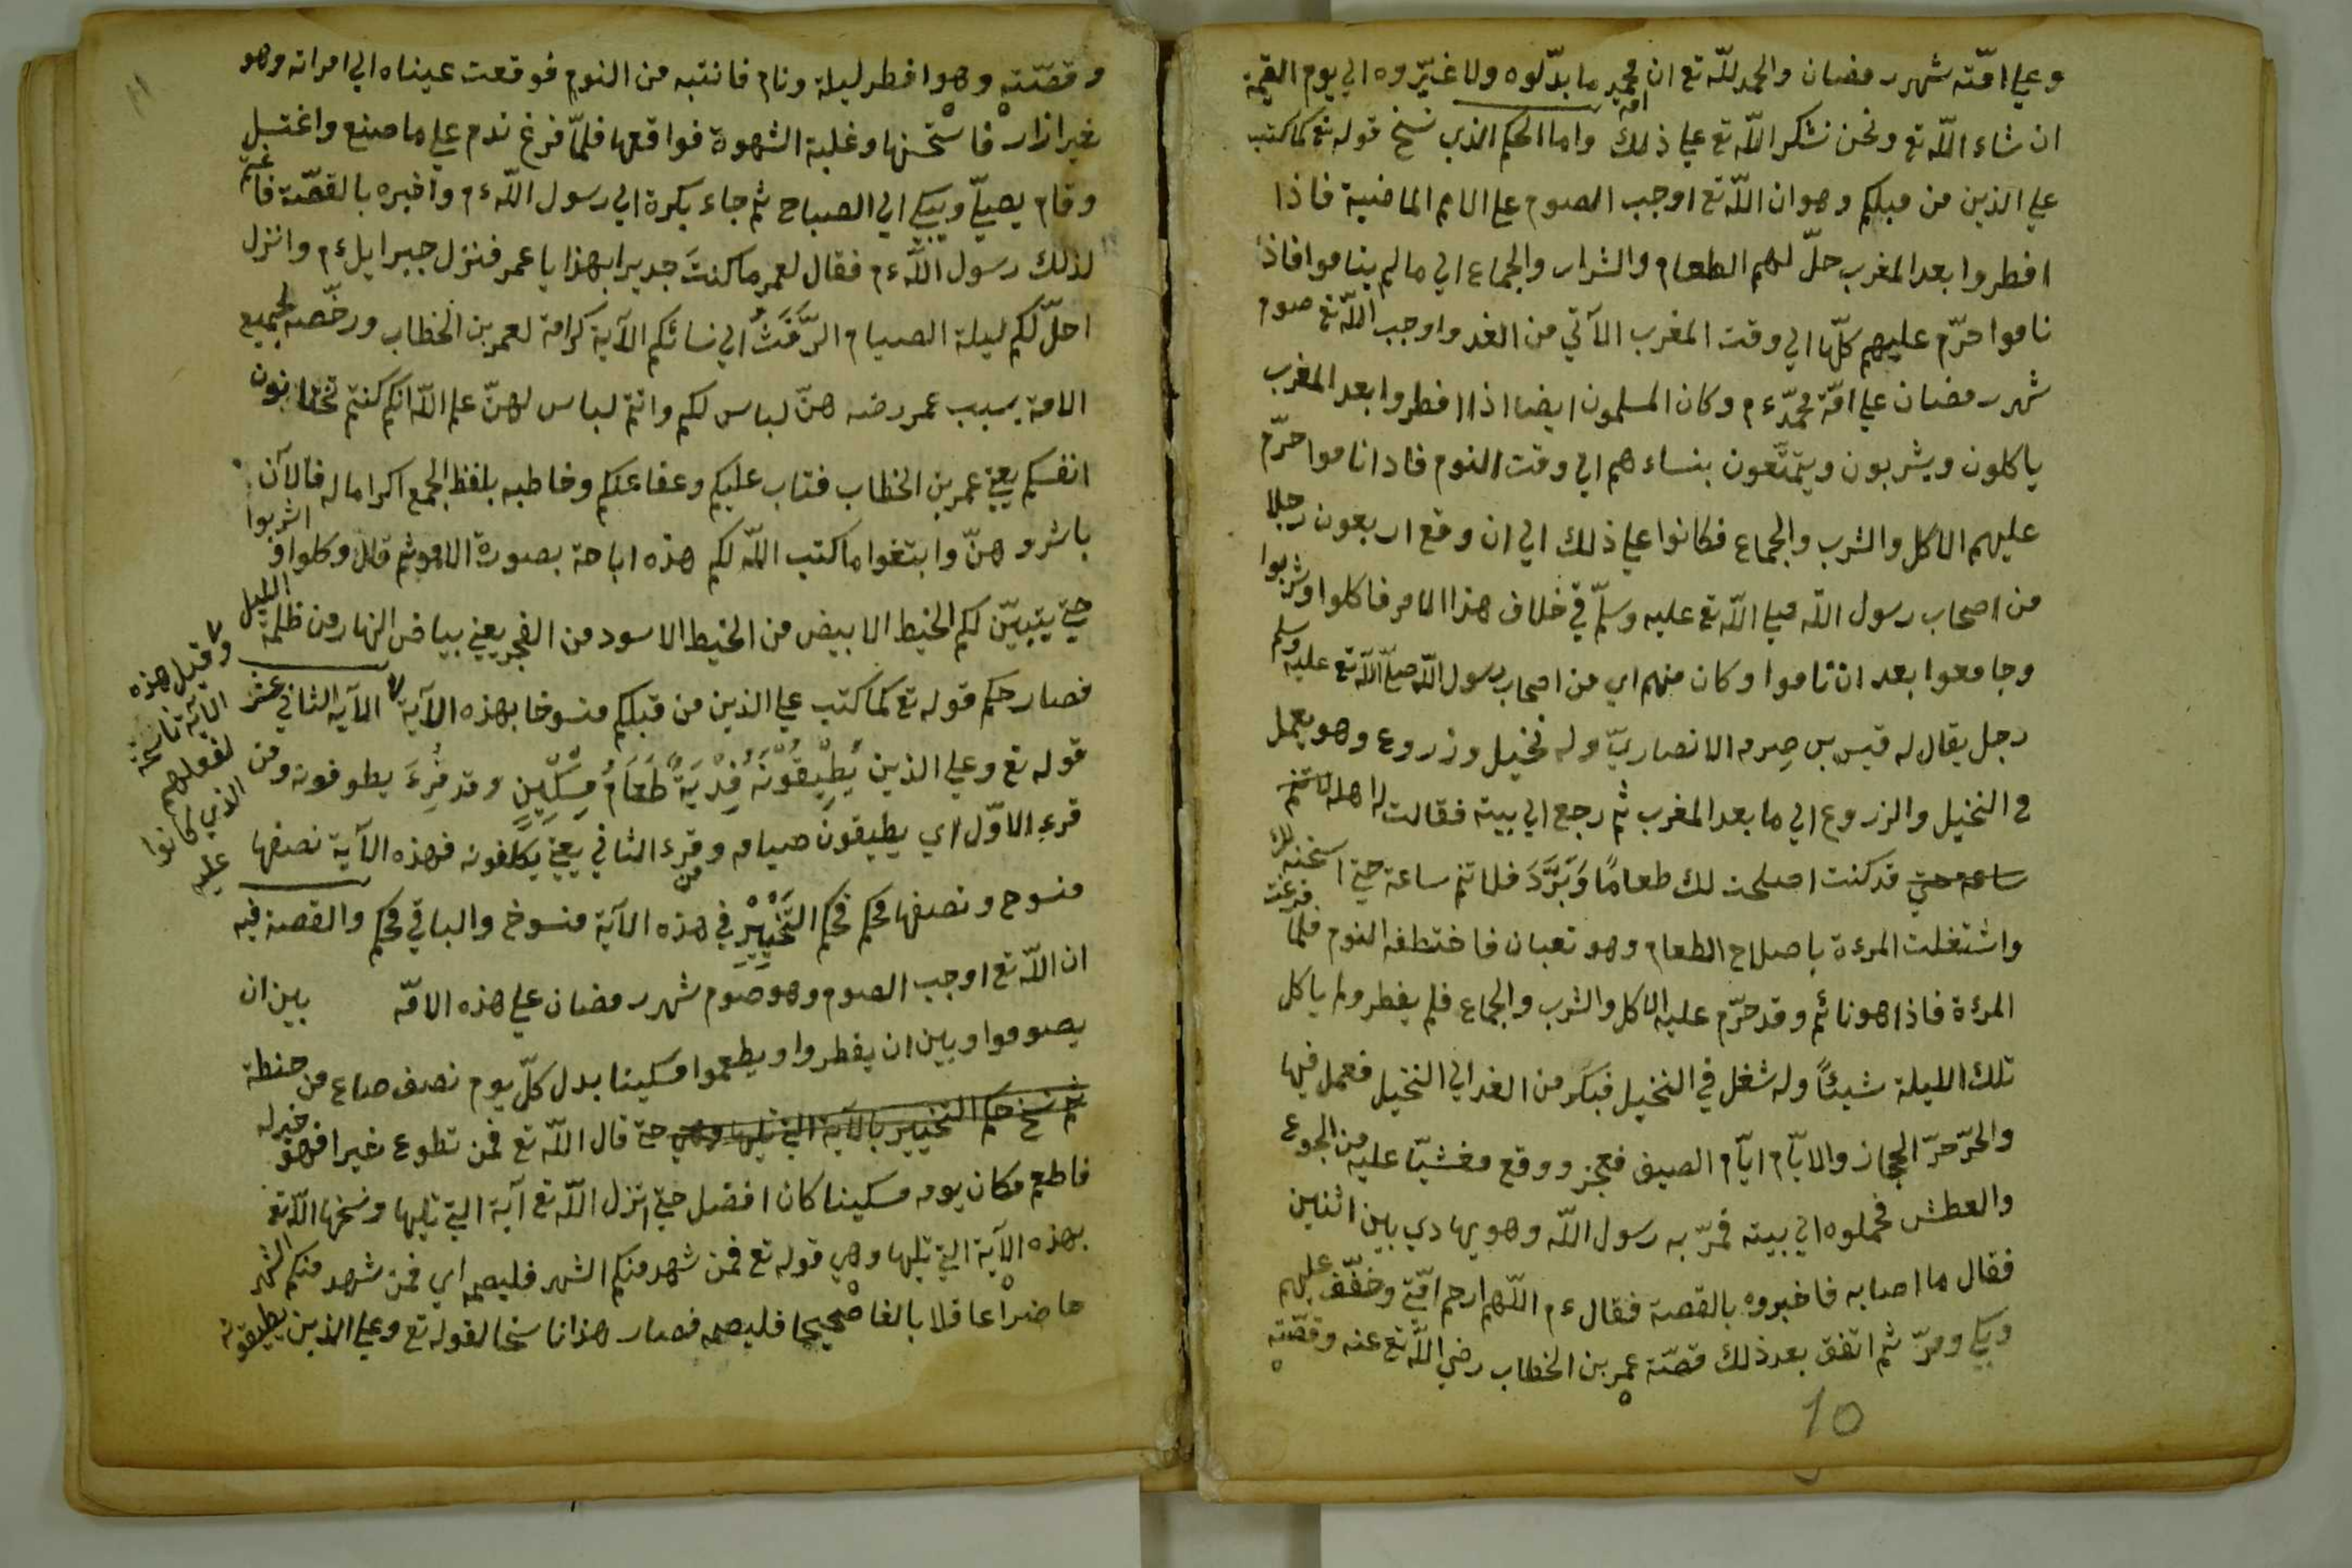 وعلي امّته شهر رمضان والحمد للّه تع ان امة محمد ما بدّلوه ولا غيّروه الي يوم القيمة
ان شاء اللّه تع ونحن نشكر اللّه تع علي ذلك واما الحكم الذي نسخ قوله تع كما كتب
علي الذين من قبلكم وهو ان اللّه تع اوجب الصوم علي الامم الماضية فاذا
افطروا بعد المغرب حلّ لهم الطعام والشراب والجماع الي مالم يناموا فاذا
ناموا حرّم عليهم كلّها الي وقت المغرب الآتي من الغد واوجب اللّه تع صوم
شهر رمضان علي امّة محمّد ءم وكان المسلمون ايضا اذا افطروا بعد المغرب
ياكلون ويشربون ويتمتّعون بنساءهم الي وقت النوم فاذا ناموا حرّم
عليهم الاكل والشرب والجماع فكانوا علي ذلك الي ان وقع اربعون رجلا
من اصحاب رسول اللّه صلي اللّه تع عليه وسلّم في خلاف هذا الامر فاكلوا وشربوا
وجامعوا بعد ان ناموا وكان منهم اي من اصحاب رسول اللّه صلّي اللّه تع عليه وسلم
رجل يقال له قيس بن صرمه الانصاريّ وله نخيل وزروع وهو يعمل
في النخيل والزروع الي ما بعد المغرب ثم رجع الي بيته فقالت له اهله لا تنم
ساعة حتي قد كنت اصلحت لك طعامًا وَبَرَّدَ فلا تنم ساعة حتي اسخنه لك
واشتغلت المرءة باصلاح الطعام وهو تعبان فاختطفه النوم فلما فرغت
المرءة فاذا هو نائم وقد حرّم عليه الاكل والشرب والجماع فلم يفطر ولم ياكل
تلك الليلة شيئًا وله شغل في النخيل فبكّر من الغد الي النخيل فعمل فيها
والحرّ حرّ الحجاز والايّام ايّام الصيف فعجز ووقع مغشيّا عليه من الجوع
والعطش فحملوه الي بيته فمرّ به رسول اللّه وهو يهادي بين اثنين
فقال ما اصابه فاخبروه بالقصة فقال ءم اللّهم ارحم امّتي وخفّف عليهم
وبكي ومرّ ثم اتفق بعد ذلك قصّة عمر بن الخطاب رضي اللّه تع عنه وقصّته
10
11
وقصّته وهو افطر ليلة ونام فانتبه من النوم فوقعت عيناه الي امراته وهو
بغير ازار فاستحسنها وغلبة الشهوة فواقعها فلمّا فرغ ندم علي ما صنع واغتسل
وقام يصلّي ويبكي الي الصباح ثم جاء بكرة الي رسول اللّه ءم واخبره بالقصّة فاغتم
لذلك رسول اللّه ءم فقال لعمر ما كنتَ جديرا بهذا يا عمر فنزل جبرايل ءم وانزل
احلّ لكم ليلة الصيام الرَّفَثُ الي نسائكم الآية كرامة لعمر بن الخطاب ورخّصه لجميع
الامة بسبب عمر رضه هنّ لباس لكم وانتم لباس لهنّ علم اللّه انكم كنتم تختانون
انفسكم يعني عمر بن الخطاب فتاب عليكم وعفا عنكم وخاطبه بلفظ الجمع اكراما له فالآن
باشروهنّ وابتغوا ما كتب اللّه لكم هذه اباحة بصورة الامر ثم قال وكلوا واشربوا
حتي يتبيّن لكم الخيط الابيض من الخيط الاسود من الفجر يعني بياض النهار من ظلمة الليل
فصار حكم قوله تع كما كتب علي الذين من قبلكم منسوخا بهذه الآية الآية الثاني عشر
قوله تع وعلي الذين يُطِيقُونَهُ فِدْيَةٌ طَعَامُ مِسْكِينٍ وقد قُرِءَ يطوقونه ومن
قرء الاوّل اي يطيقون صيامه وقرء الثاني يعني يكلفونه فهذه الآية نصفها
منسوخ ونصفها محكم فحكم التَّخْيِيْرِ من في هذه الآية منسوخ والباقي محكم والقصة فيه
ان اللّه تع اوجب الصوم وهو صوم شهر رمضان علي هذه الامّه بين ان
يصوموا وبين ان يفطروا ويطعموا مسكينا بدل كلّ يوم نصف صاع من حنطة
ثم نسخ حكم التخيير بالآية التي تليها وهي حتي قال اللّه تع فمن تطوع خيرا فهو خير له
فاطعم مكان يومه مسكينا كان افضل حتي انزل اللّه تع آية التي تليها ونسخها اللّه تع
بهذه الآية التي تليها وهي قوله تع فمن شهد منكم الشهر فليصمه اي فمن شهد منكم الشهر
حاضرا عاقلا بالغا صحيحا فليصمه فصار هذا ناسخا لقوله تع وعلي الذين يطيقونه
وقيل هذه
الآية ناسخة
لفعلهم
الذي كانوا
عليه